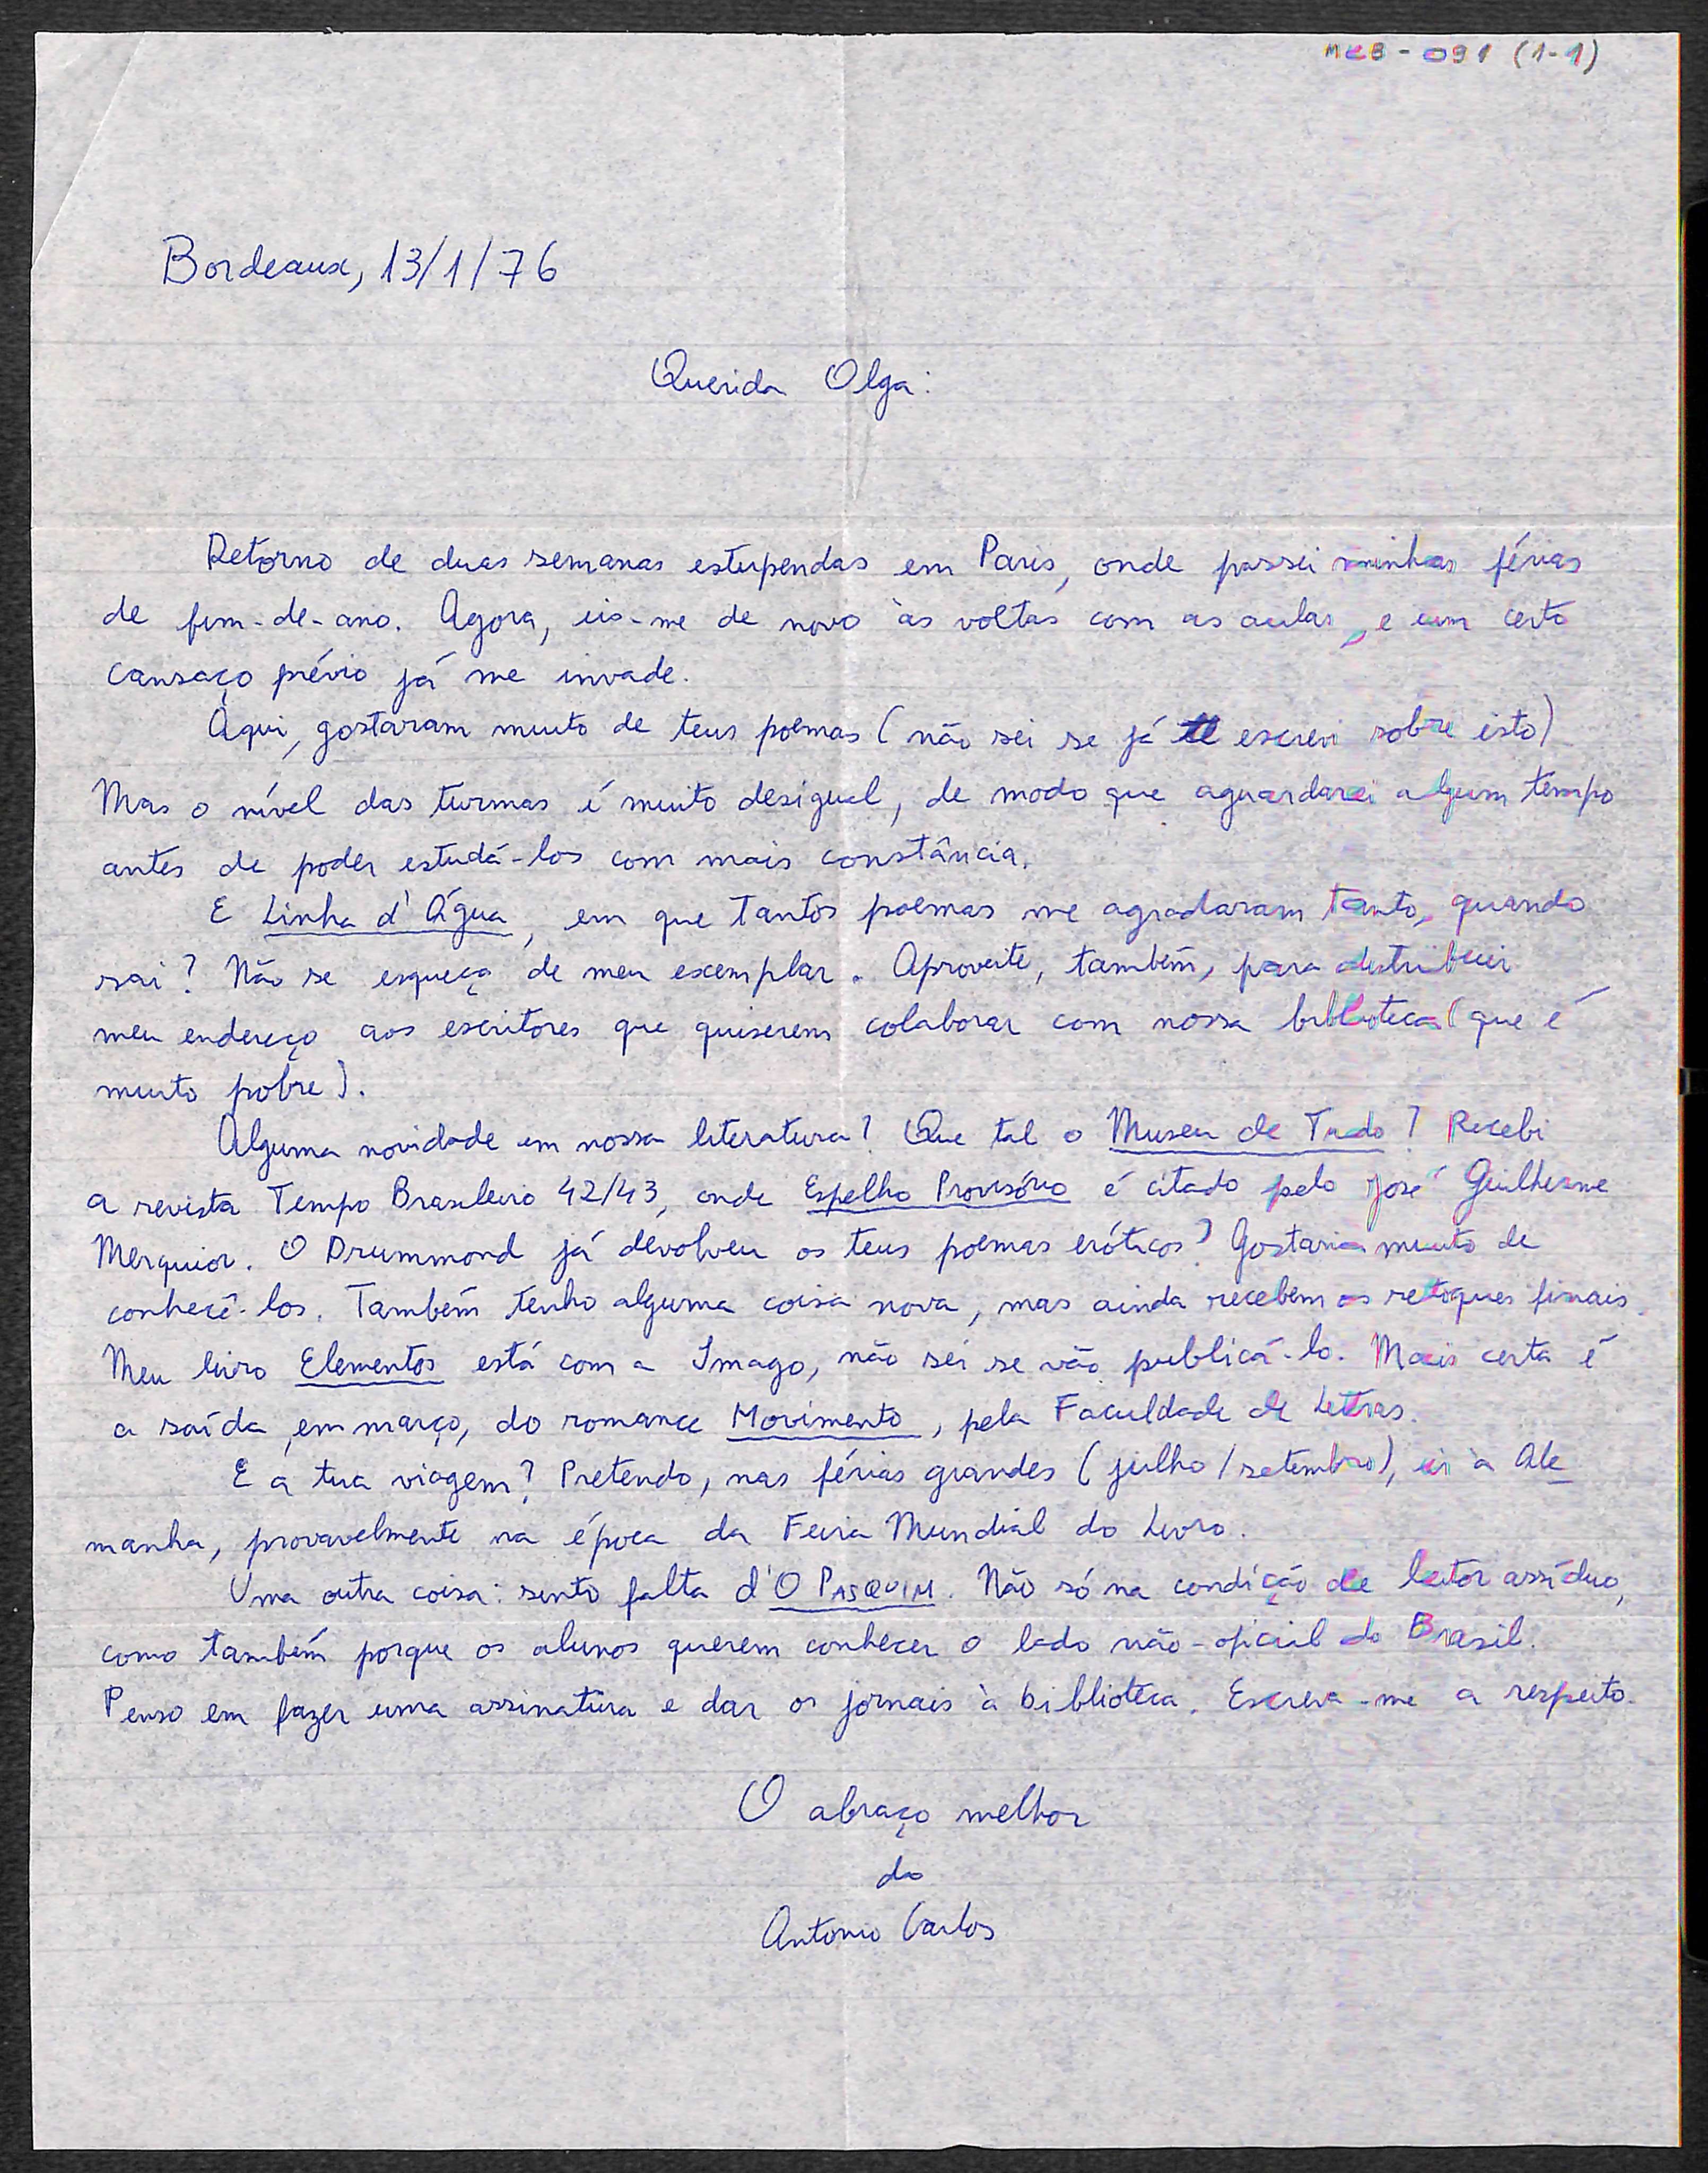 MEB - 091 (1-1)
Bordeaux, 13/1/76
Querida Olga:
Retorno de duas semanas estupendas em Paris, onde passei minhas férias
de fim-de-ano. Agora, eis-me de novo às voltas com as aulas, e um certo
cansaço prévio já me invade.
Aqui, gostaram muito de teus poemas (não sei se já te escrevi sobre isto)
Mas o nível das turmas é muito desigual, de modo que aguardarei algum tempo
antes de poder estudá-los com mais constância.
E Linha d'Água, em que tantos poemas me agradaram tanto, quando
sai? Não se esqueça de meu exemplar. Aproveite, também, para distribuir
meu endereço aos escritores que quiserem colaborar com nossa biblioteca (que é
muito pobre).
Alguma novidade em nossa literatura? Que tal o Museu de Tudo? Recebi
a revista Tempo Brasileiro 42/43, onde Espelho Provisório é citado pelo José Guilherme
Merquior. O Drummond já devolveu os teus poemas eróticos? Gostaria muito de
conhecê-los. Também tenho alguma coisa nova, mas ainda recebem os retoques finais.
Meu livro Elementos está com a Imago, não sei se vão publicá-lo. Mais certa é
a saída, em março, do romance Movimento, pela Faculdade de Letras.
E a tua viagem? Pretendo, nas férias grandes (julho/setembro), ir à Ale
manha, provavelmente na época da Feira Mundial do Livro.
Uma outra coisa: sinto falta d'O PASQUIM. Não só na condição de leitor assíduo,
como também porque os alunos querem conhecer o lado não-oficial do Brasil.
Penso em fazer uma assinatura e dar os jornais à biblioteca. Escreva-me a respeito.
O abraço melhor
do
Antonio Carlos